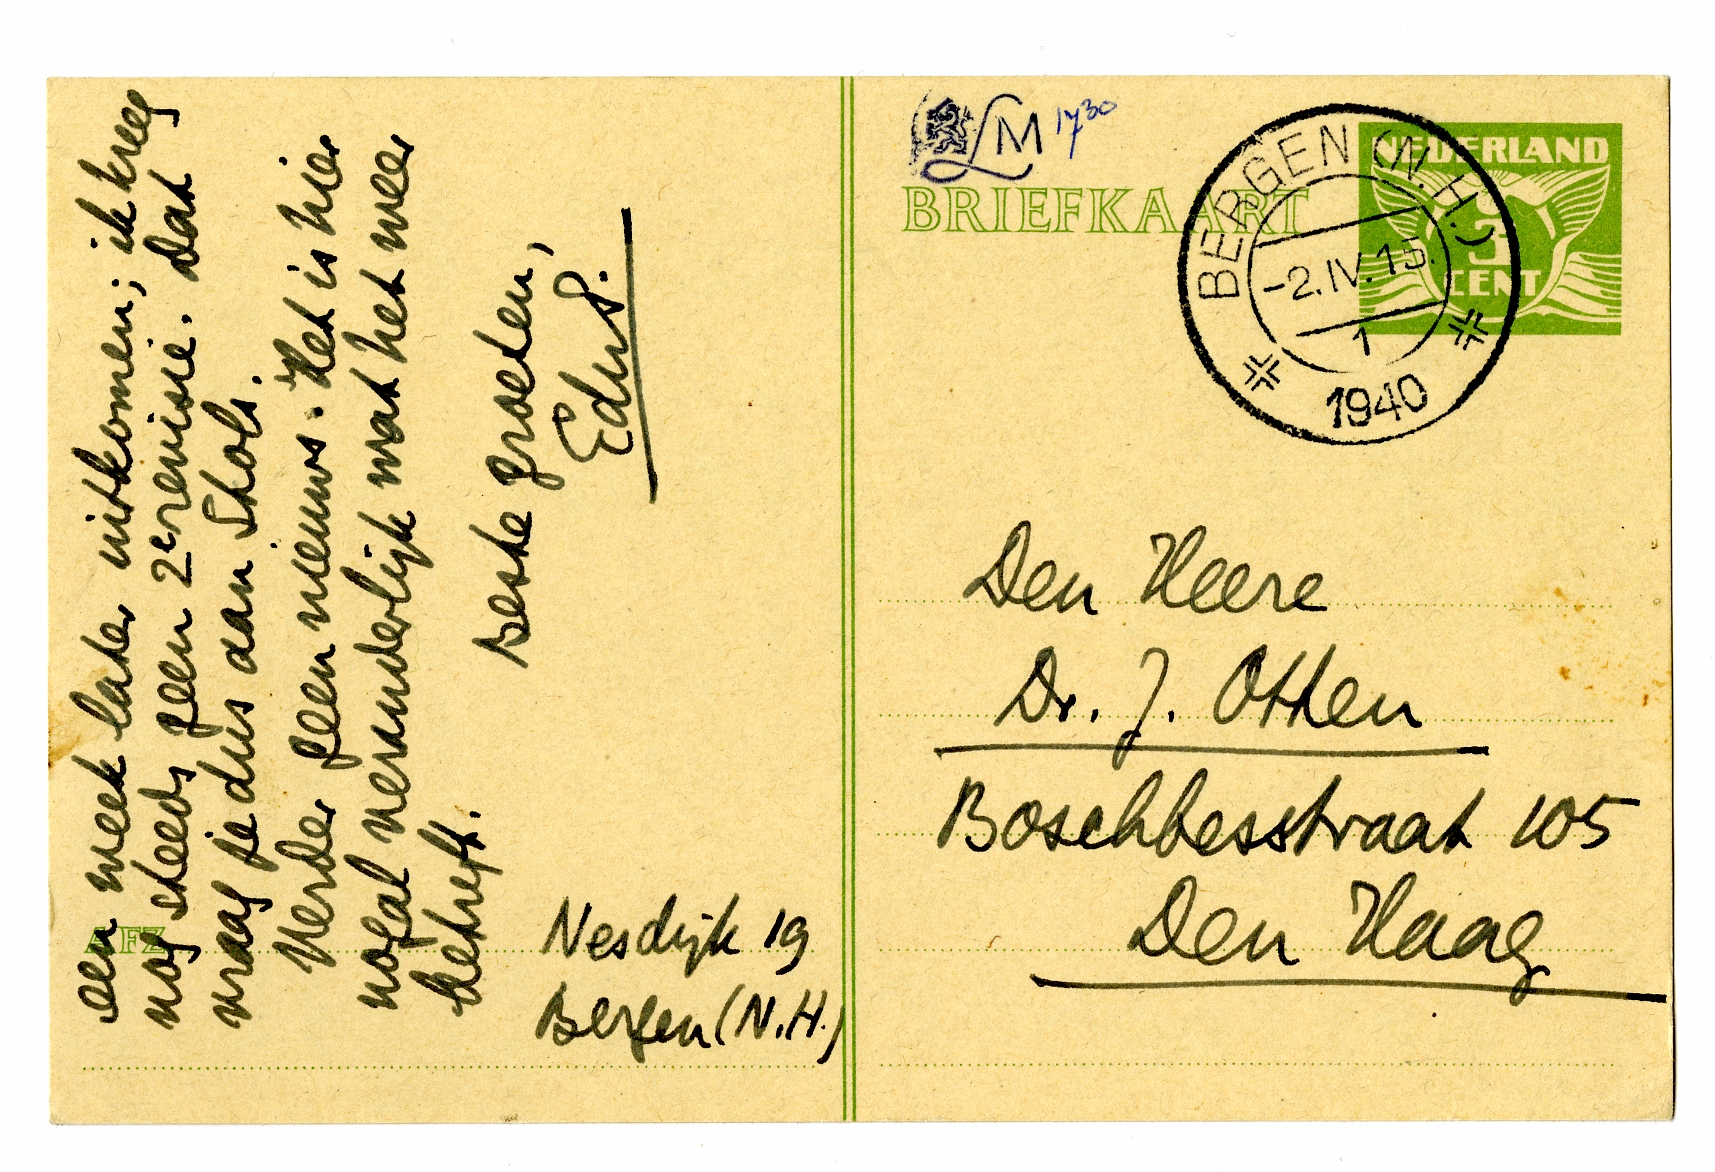 een week later uitkomen; ik kreeg
nog steeds geen 2e revisie. Dat
vraag je dus aan Stols.
Verder geen nieuws. Het is hier
nogal veranderlijk wat het weer
betreft.
Beste groeten,
EduP.
AFZ
Nesdijk 19
Bergen (N.H.)
LM 1730
BRIEFKAART
BERGEN (N.H.)
-2.IV.15.
1
1940
NEDERLAND
3
CENT
Den Heere
Dr. J. Otten
Boschbesstraat 105
Den Haag